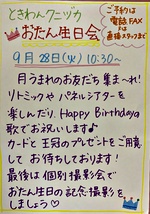 ときわんクニヅカ
おたん生日会
ご予約は
電話、FAX
は
直接スタッフまで
9月28日(火) 10:30~
月うまれのお友だち集まれ!
リトミックやパネルシアターを
楽しんだり、Happy Birthdayの
歌でお祝いします♪
カードと王冠のプレゼントをご用意
してお待ちしております!
最後は個別撮影会で
おたん生日の記念撮影を
しましょう♡